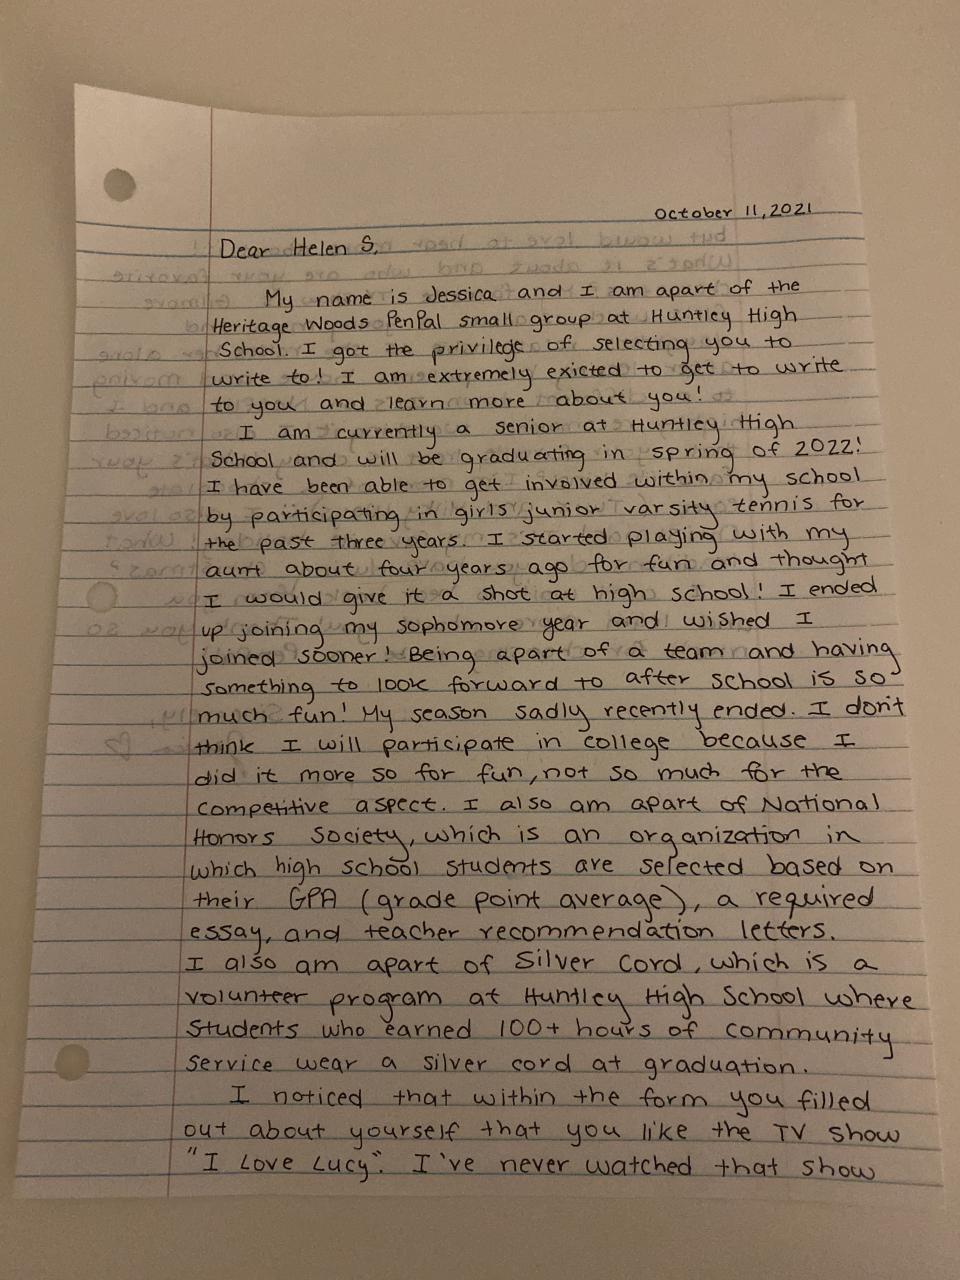 October 11, 2021
Dear Helen S,
My name is Jessica and I am apart of the
Heritage Woods PenPal small group at Huntley High
School. I got the privilege of selecting you to
write to! I am extremely exicted to get to write
to you and learn more about you!
I am currently a senior at Huntley High
School and will be graduating in spring of 2022!
I have been able to get involved within my school
by participating in girls junior varsity tennis for
the past three years. I started playing with my
aunt about four years ago for fun and thought
I would give it a shot at high school! I ended
up joining my sophomore year and wished I
joined sooner! Being apart of a team and having
something to look forward to after school is so
much fun! My season sadly recently ended. I don't
think I will participate in college because I
did it more so for fun, not so much for the
competitive aspect. I also am apart of National
Honors Society, which is an organization in
which high school students are selected based on
their GPA (grade point average), a required
essay, and teacher recommendation letters.
I also am apart of Silver Cord, which is a
volunteer program at Huntley High School where
students who earned 100+ hours of community
service wear a silver cord at graduation.
I noticed that within the form you filled
out about yourself that you like the TV show
"I Love Lucy". I've never watched that show